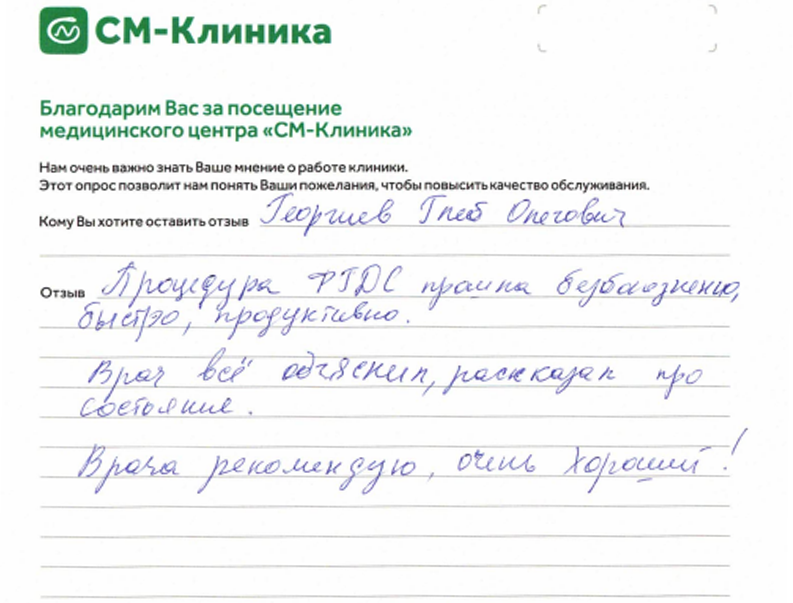 СМ-Клиника
Благодарим Вас за посещение
медицинского центра «СМ-Клиника»
Нам очень важно знать Ваше мнение о работе клиники.
Этот опрос позволит нам понять Ваши пожелания, чтобы повысить качество обслуживания.
Кому Вы хотите оставить отзыв Георгиев Глеб Олегович
Отзыв Процедура ФГДС прошла безболезненно,
быстро, продуктивно.
Врач всё объяснил, рассказал про
состояние.
Врача рекомендую, очень хороший!